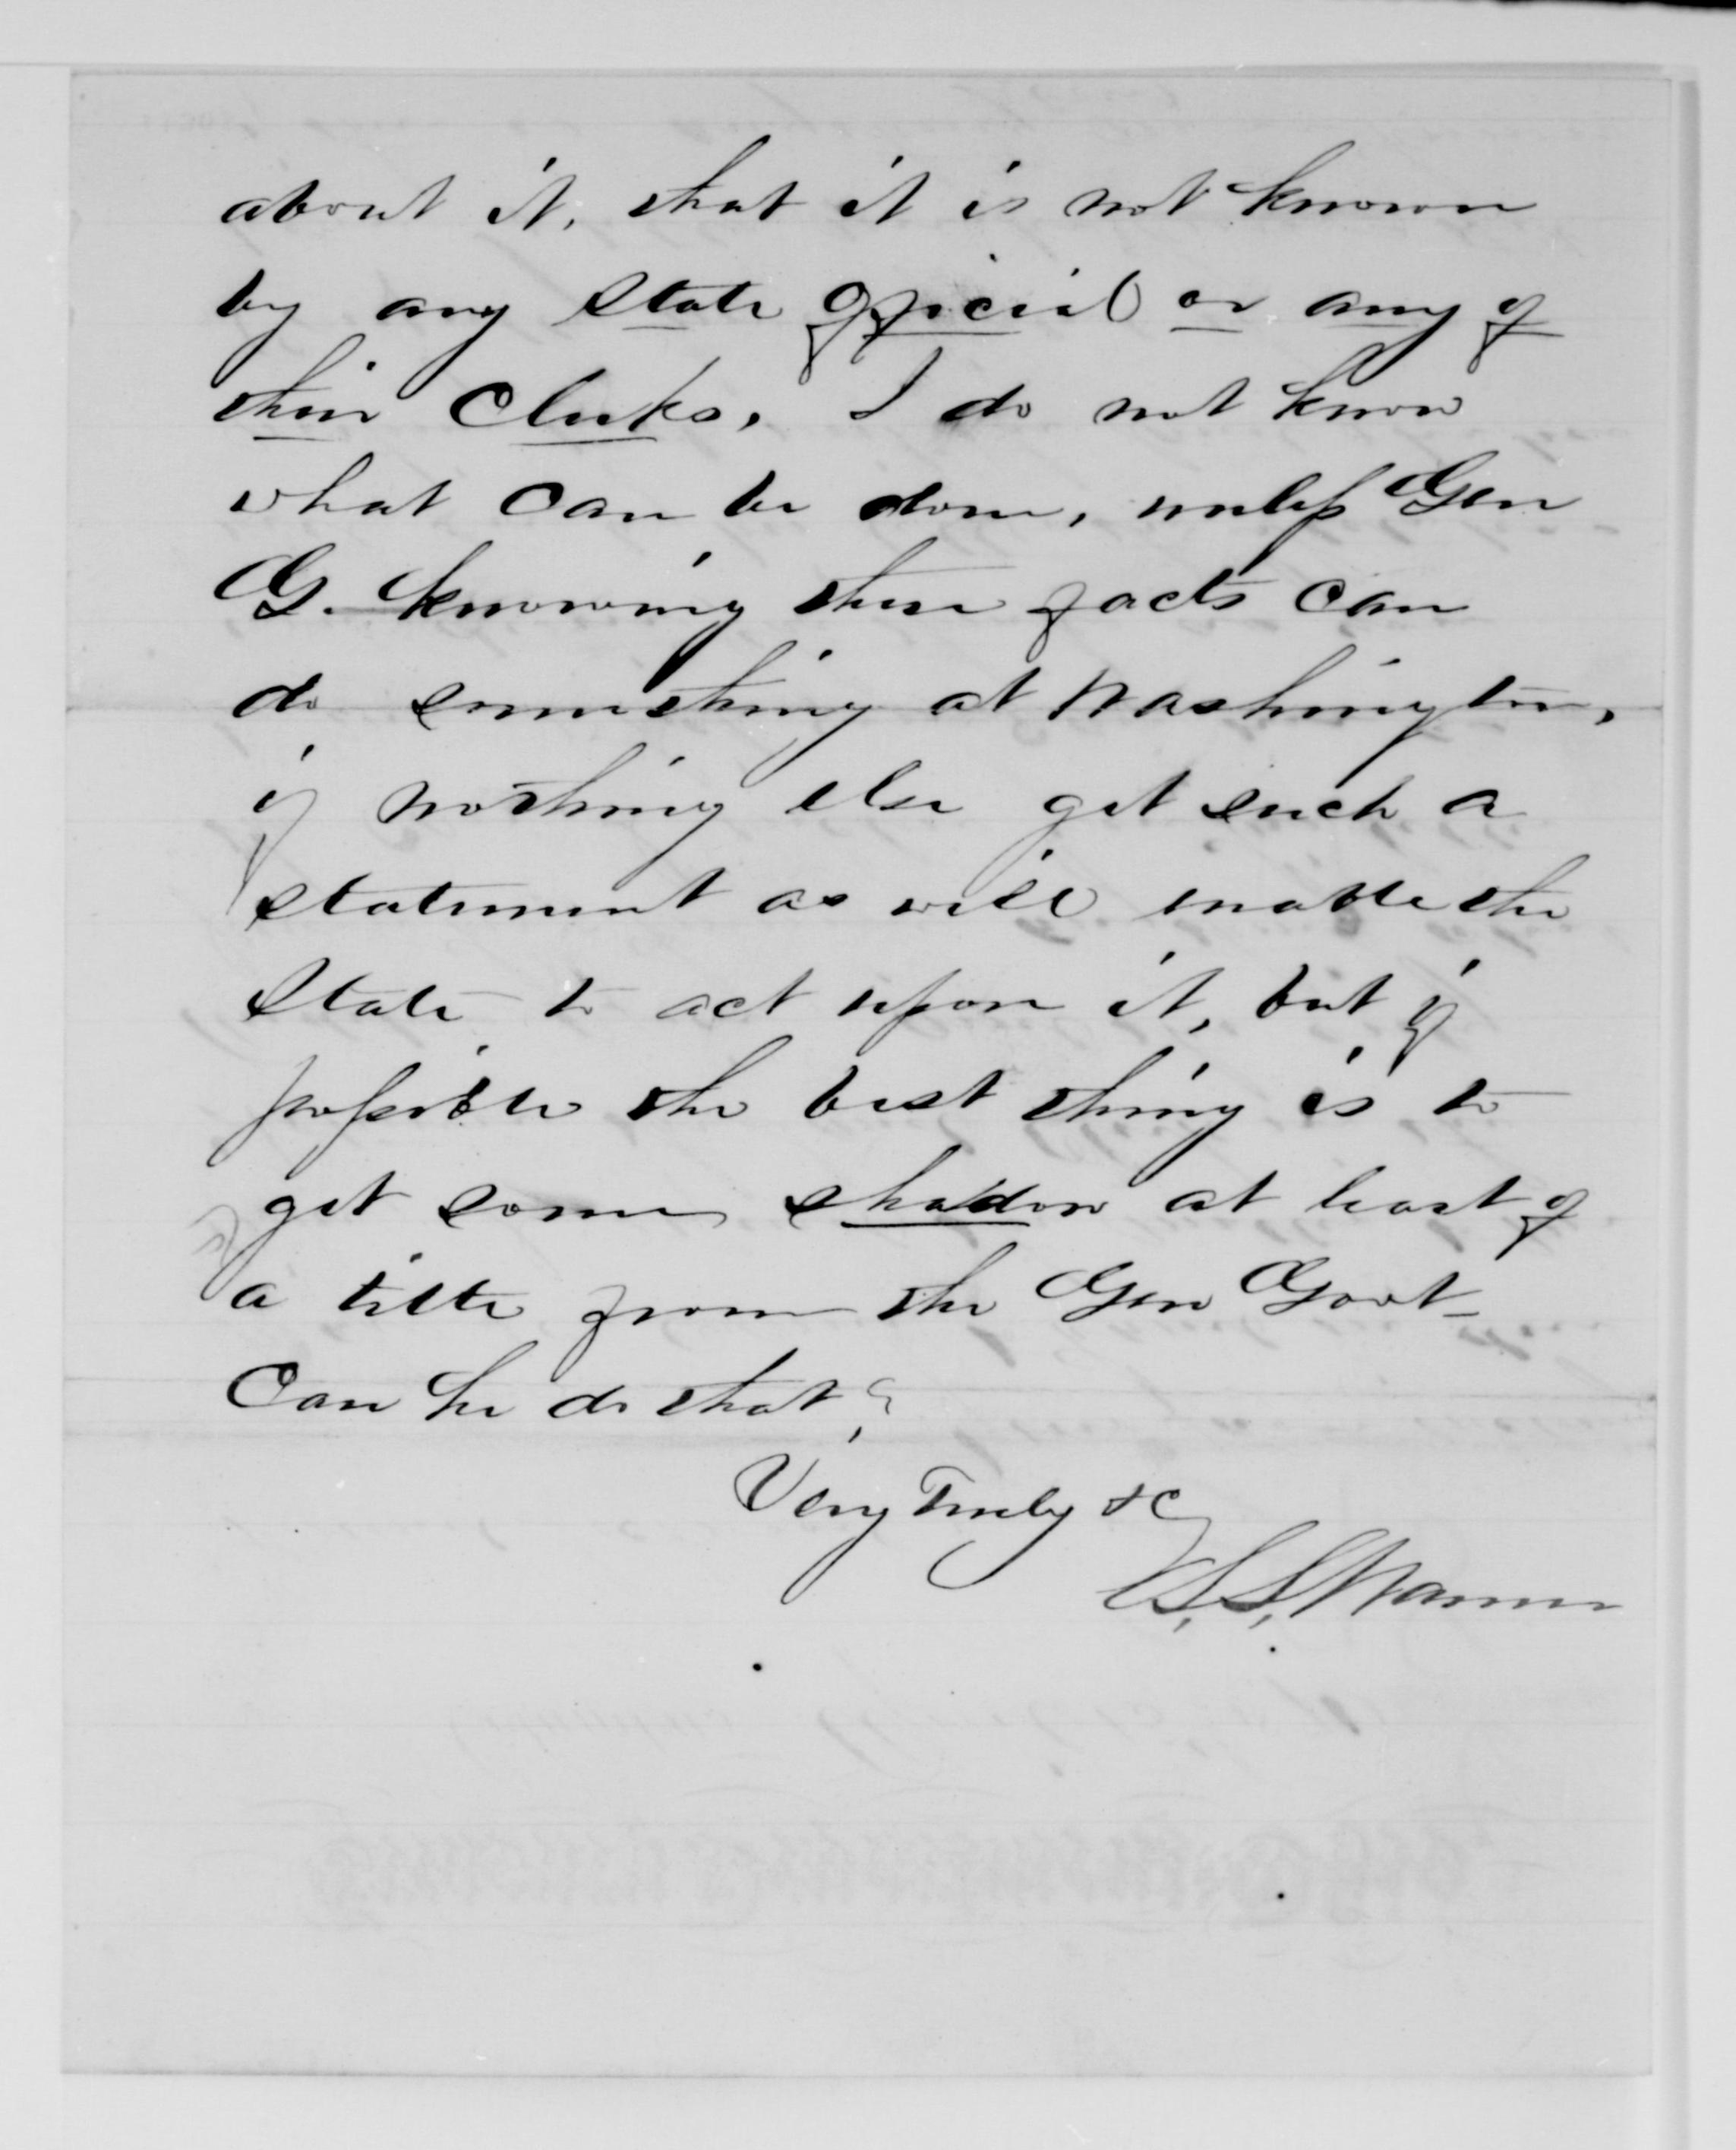 about it, that it is not known
by any State Official or any of
their Clerks. I do not know
what can be done, unless Gen
G. knowing these facts can
do something at Washington,
if nothing else get such a
statement as will enable the
State to act upon it, but if
possible the best thing is to
get some shadow at least of
a title from the Gen Govt_
Can he do that?
Very Truly &c
S. Warner